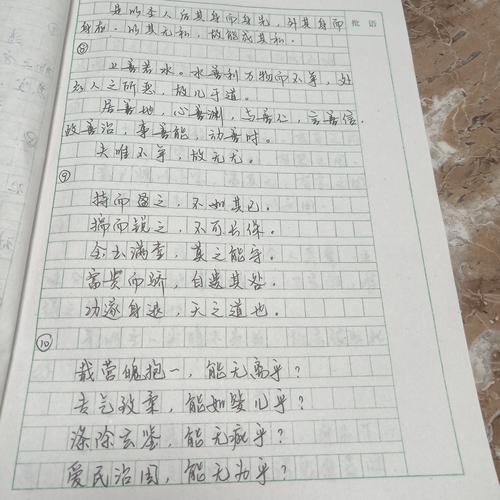 批语
是以圣人后其身而身先，外其身而
身存。以其无私，故能成其私。
⑧
上善若水。水善利万物而不争，处
众人之所恶，故几于道。
居善地，心善渊，与善仁，言善信，
政善治，事善能，动善时。
夫唯不争，故无尤。
⑨
持而盈之，不如其已。
揣而锐之，不可长保。
金玉满堂，莫之能守。
富贵而骄，自遗其咎。
功遂身退，天之道也。
⑩
载营魄抱一，能无离乎？
专气致柔，能如婴儿乎？
涤除玄鉴，能无疵乎？
爱民治国，能无为乎？